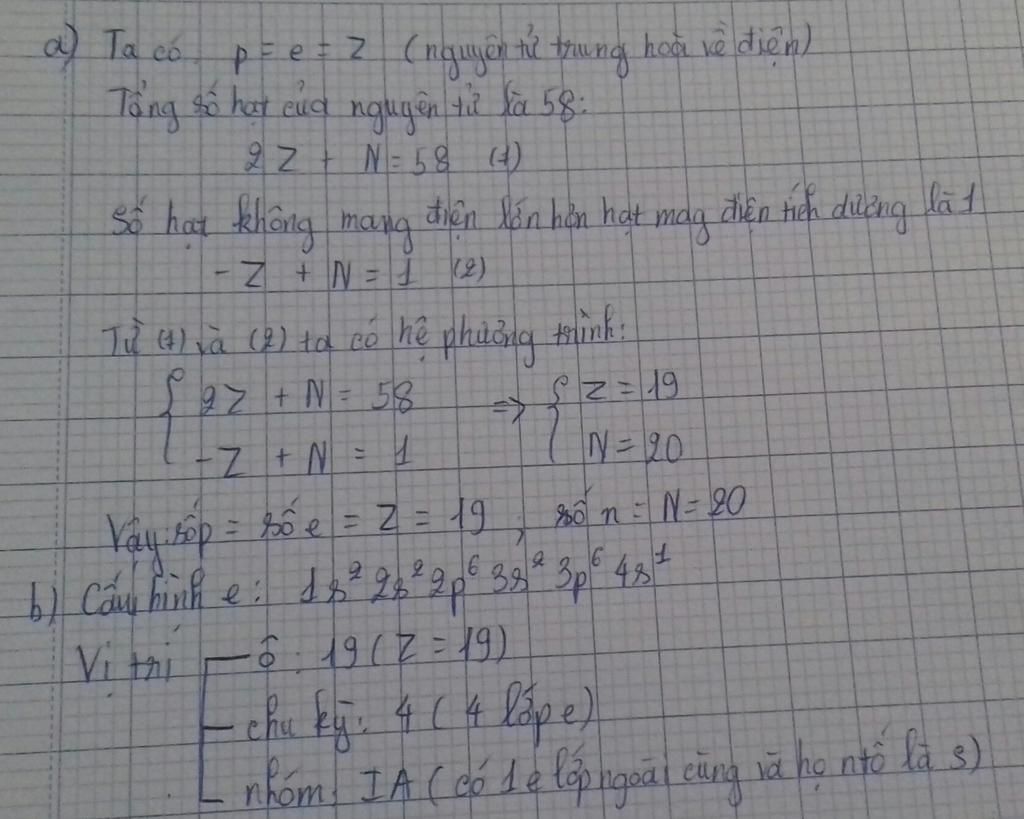 a) Ta có p = e = Z (nguyên tử trung hoà về điện)
Tổng số hạt của nguyên tử là 58:
2Z + N = 58 (1)
Số hạt không mang điện lớn hơn hạt mag điện tích dương là 1
-Z + N = 1 (2)
Từ (1) và (2) ta có hệ phương trình:
{ 2Z + N = 58 => { Z = 19
-Z + N = 1 N = 20
Vậy: số p = số e = Z = 19 ; số n = N = 20
b) Cấu hình e: 1s² 2s² 2p⁶ 3s² 3p⁶ 4s¹
Vị trí - ô: 19 (Z = 19)
- chu kỳ: 4 (4 lớp e)
- nhóm IA (có 1e lớp ngoài cùng và họ ntố là s)